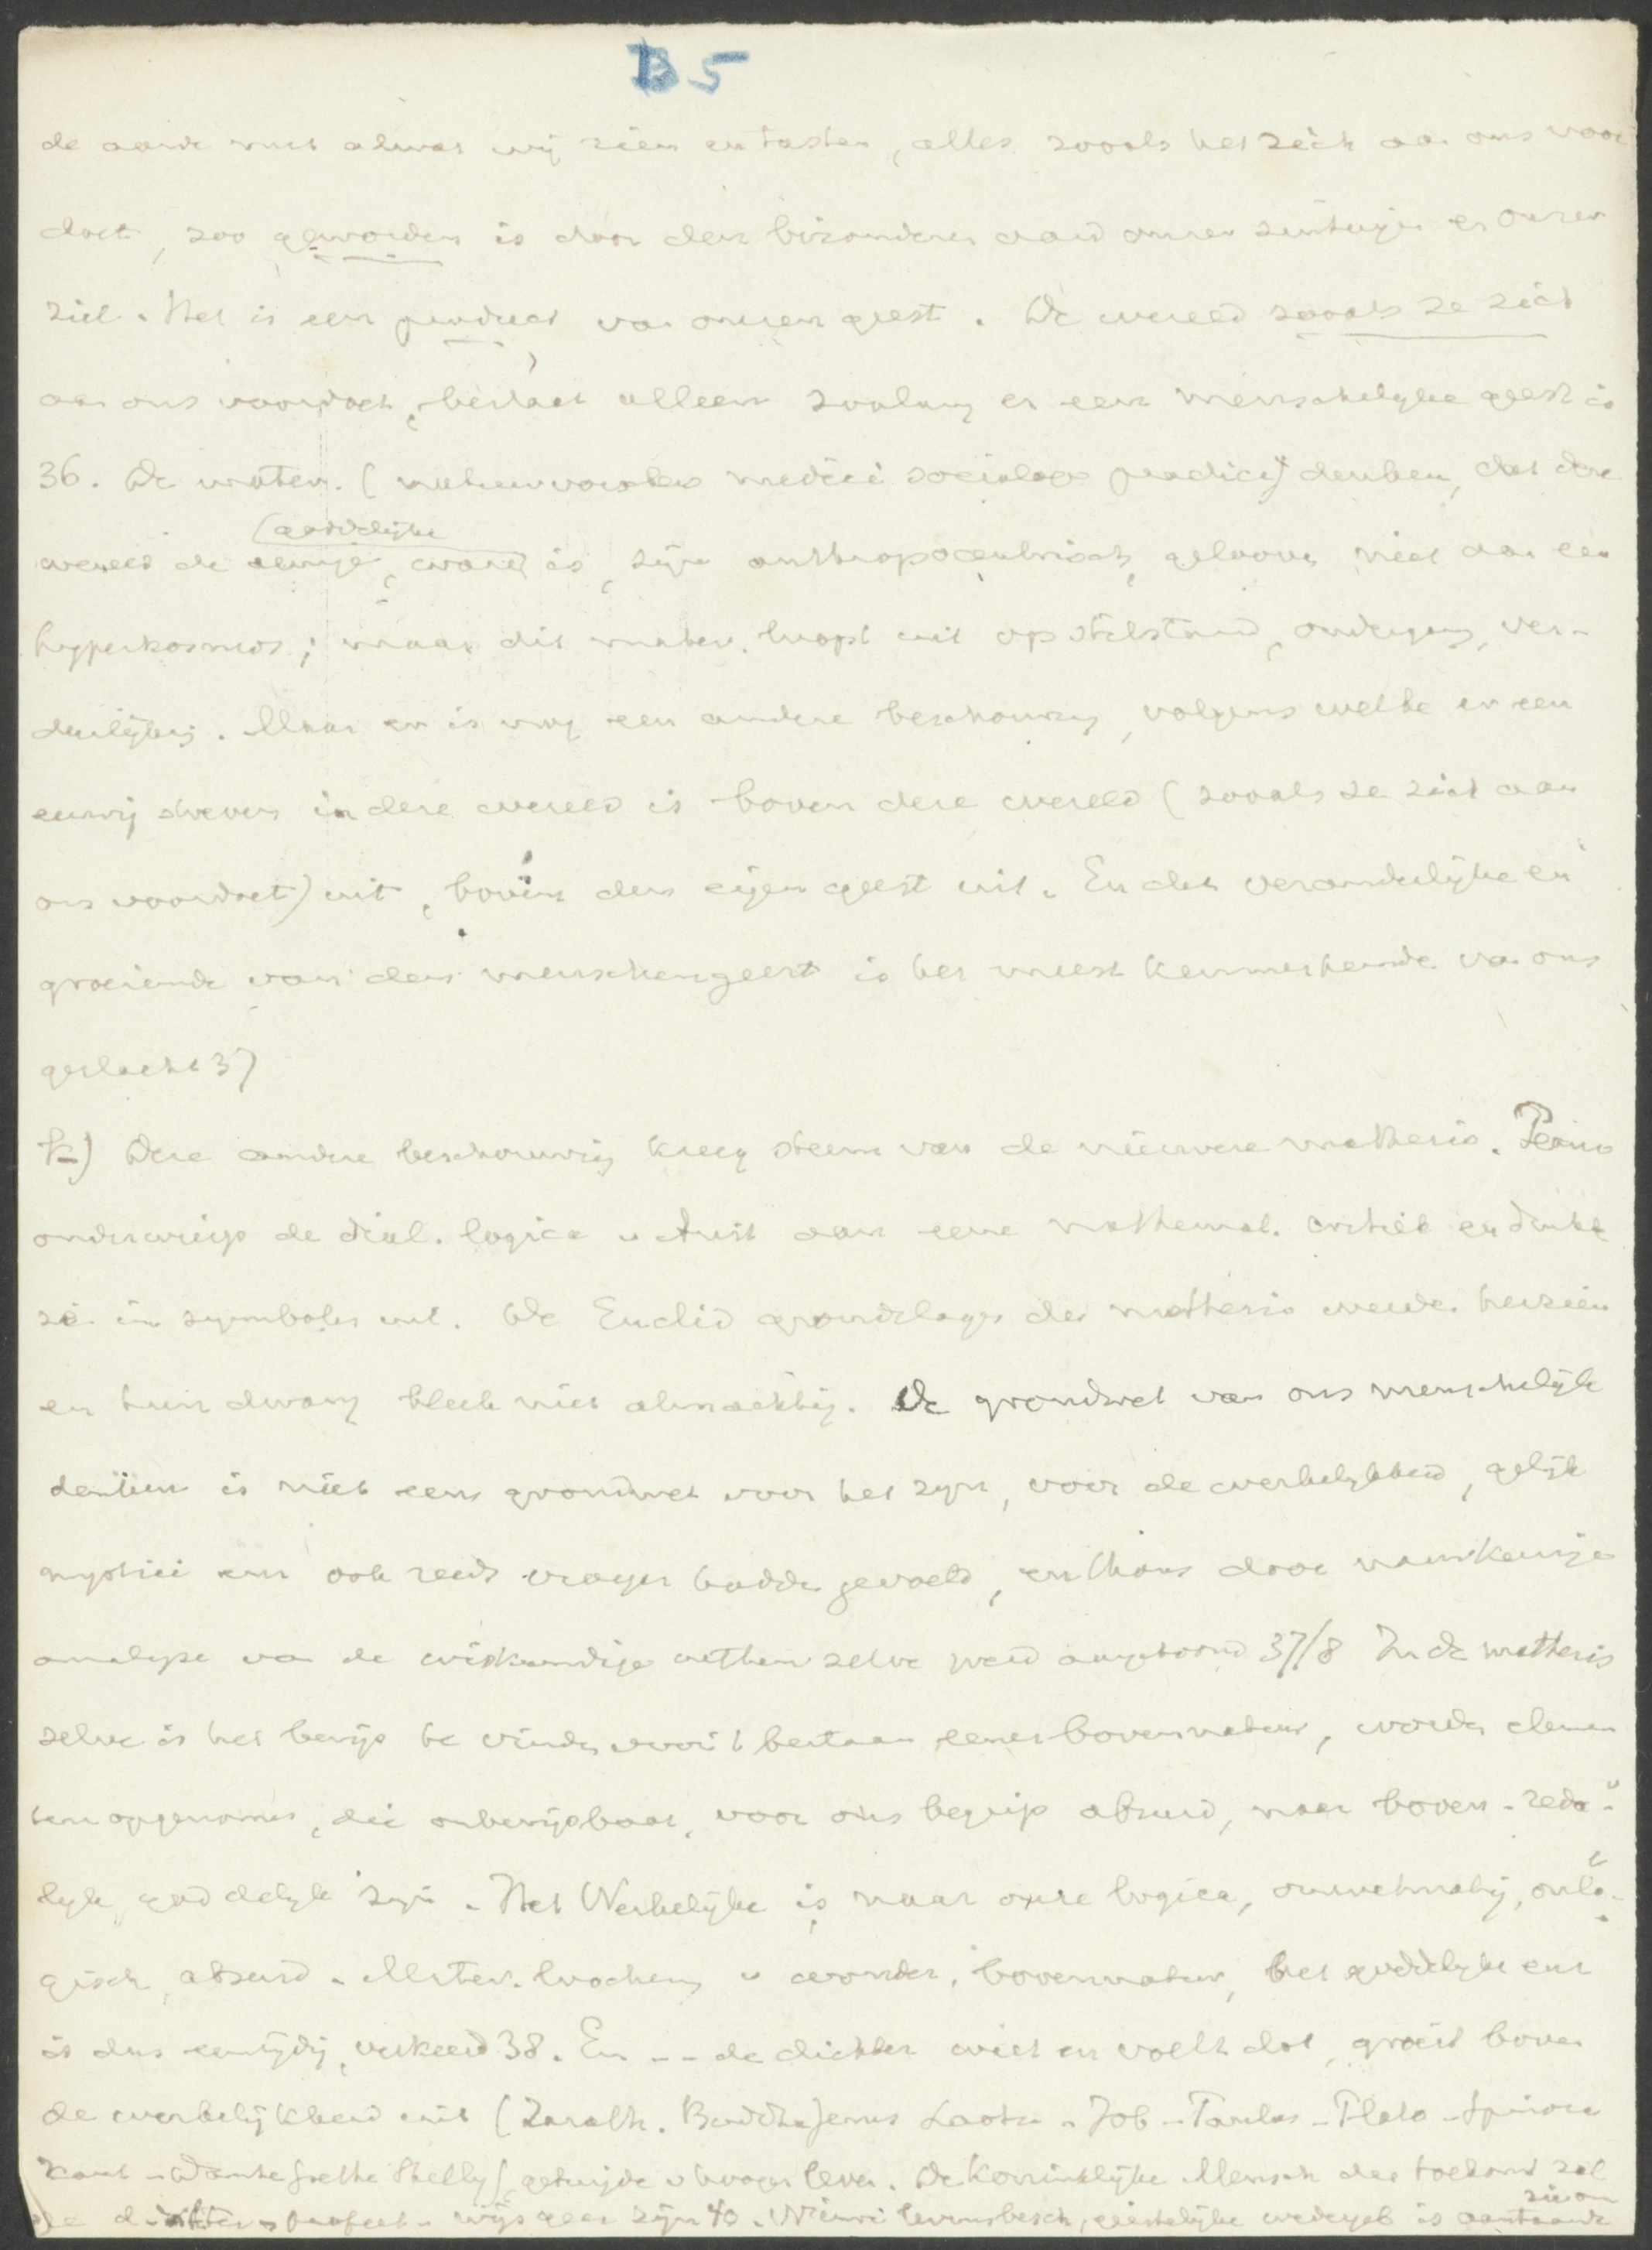 B 5
de aarde met alwat wij zien en tasten, alles zooals het zich aan ons voor
doet, zoo geworden is door den bizonderen aard onzer zintuigen en onzer
ziel. Het is een product van onzen geest. De wereld zooals ze zich
aan ons voordoet, bestaat alleen zoolang er een menschelijke geest is
36. De mater. (natuurvorschers medici sociologe practici) denken, dat deze
wereld de eenige, (goddelijke ware is, zijn anthropocentrisch, gelooven niet aan een
hyperkosmos; maar dit mater. loopt uit op stilstand, ondergang, ver-
derlijking. Maar er is nog een andere beschouwing, volgens welke er een
eeuwig streven in deze wereld is boven deze wereld (zooals ze zich aan
ons voordoet) uit, boven den eigen geest uit. En dat veranderlijke en
groeiende van den menschengeest is het meest kenmerkende van ons
geslacht 37
k) Deze andere beschouwing kreeg steun van de nieuwere mathesis. Peano
onderwierp de dial. logica v Arist aan eene mathemat. critiek en drukte
ze in symbolen uit. De Euclid grondslagen der mathesis werden herzien
en hun dwang bleek niet almachtig. De grondwet van ons menschelijk
denken is niet eens grondwet voor het zijn, voor de werkelijkheid, gelijk
mystici enz ook reeds vroeger hadden gevoeld, en thans door nauwkeurige
analyse van de wiskundige wetten zelve werd aangetoond 37/8 In de mathesis
zelve is het bewijs te vinden voor 't bestaan eener bovennatuur, worden elemen
ten opgenomen, die onbewijsbaar, voor ons begrip absurd, maar boven-rede-
lijk, goddelijk zijn. Het Werkelijke is naar onze logica, onwetmatig, onlo-
gisch, absurd. Mater. loochening v wonder, bovennatuur, het goddelijke enz
is dus eenzijdig, verkeerd 38. En -- de dichter weet en voelt dat, groeit boven
de werkelijkheid uit (Zarath. Buddha Jezus Laotse - Job - Paulus - Plato - Spinoza
Kant - Dante Goethe Shelly) getuigde v hooger leven. De Koninklijke Mensch der toekomst zal
de dichter - profeet - wijsgeer zijn 40. Nieuwe levensbesch, geestelijke wedergeb is aanstaande